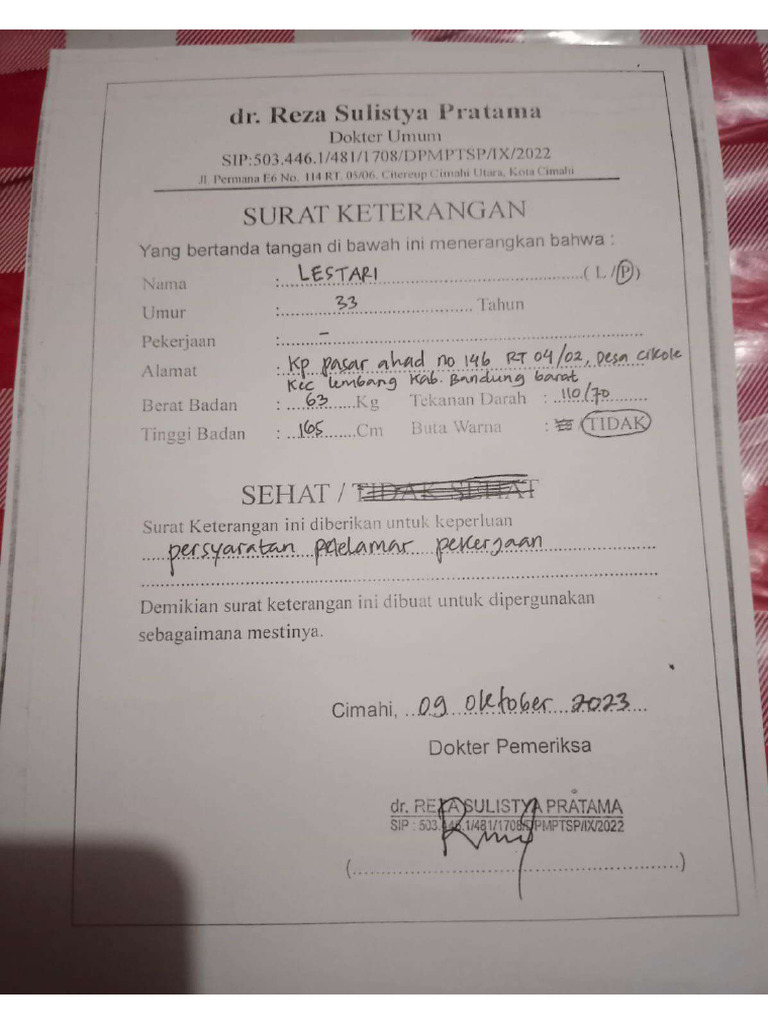 dr. Reza Sulistya Pratama
Dokter Umum
SIP:503.446.1/481/1708/DPMPTSP/IX/2022
Jl. Permana E6 No. 114 RT. 05/06. Citereup Cimahi Utara, Kota Cimahi
SURAT KETERANGAN
Yang bertanda tangan di bawah ini menerangkan bahwa :
Nama : LESTARI ( L / P )
Umur : 33 Tahun
Pekerjaan : -
Alamat : Kp pasar ahad no 146 RT 04/02, Desa Cikole
Kec lembang Kab. Bandung barat
Berat Badan : 63 Kg Tekanan Darah : 110/70
Tinggi Badan : 165 Cm Buta Warna : / TIDAK
SEHAT / TIDAK SEHAT
Surat Keterangan ini diberikan untuk keperluan
persyaratan pelelamar pekerjaan
Demikian surat keterangan ini dibuat untuk dipergunakan
sebagaimana mestinya.
Cimahi, 09 Oktober 2023
Dokter Pemeriksa
dr. REZA SULISTYA PRATAMA
SIP : 503.446.1/481/1708/DPMPTSP/IX/2022
(....................)